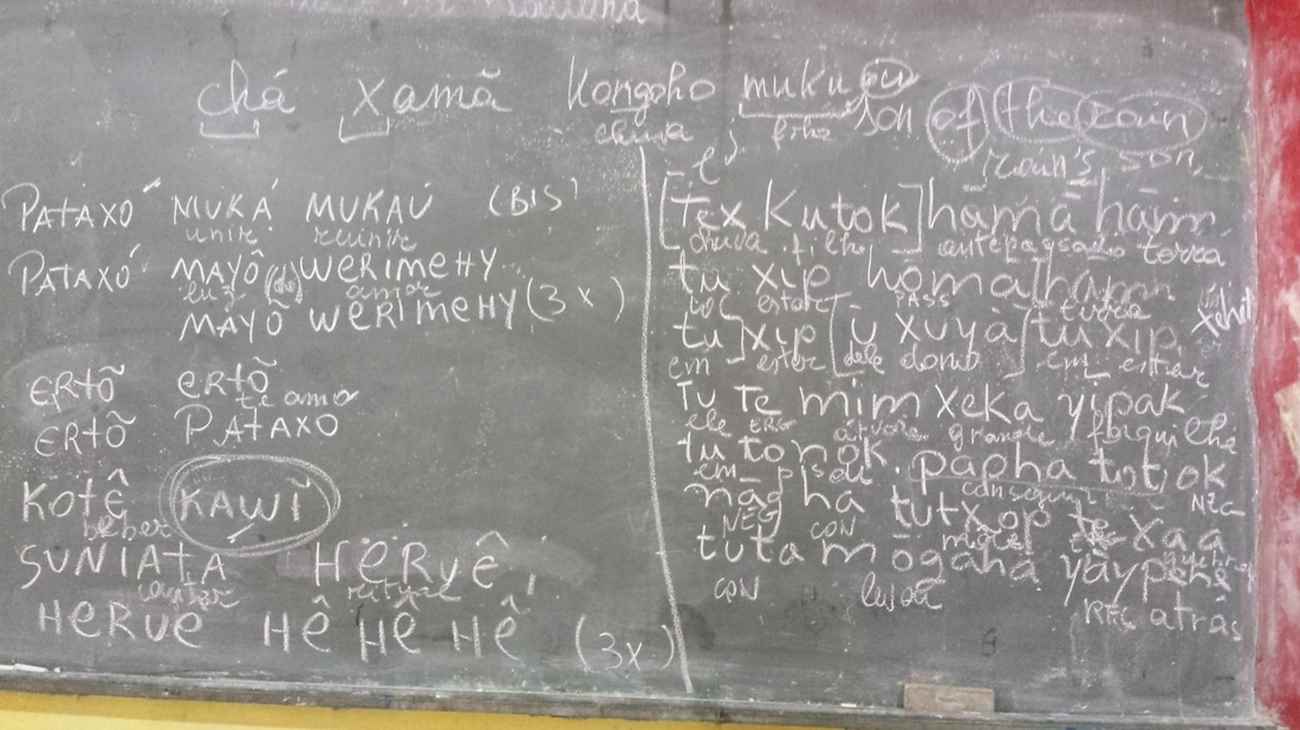 chá xamã Kongoho muku
chuva filho son of the
rain's son
PATAXÓ MUKÁ MUKAÚ (BIS)
unir reunir
PATAXÓ MAYÔ WERIMEHY
luz (de) amor
MAYÔ WERIMEHY (3x)
ERTÕ ERTÕ
te amo
ERTÕ PATAXO
KOTÊ KAWĨ
beber
SUNIATÁ HERUÊ
cantar ritual
HERUE HÊ HÊ HÊ (3x)
[Tex Kutok] hãmã hãm
chuva filho antepassado terra
tu xip hõmã hãm
estar PASS terra
tu] xip [ũ xuyã] tu xip
em estar dele dono em estar
Tu Te mĩm xeka yĩpak
ele ERG árvore grande forquilha
tu tonok papha tutjok
em NEG
nãg ha tutxop te xaa
NEG CON
tuta mõgãhã yãypehe
CON REFL atrás